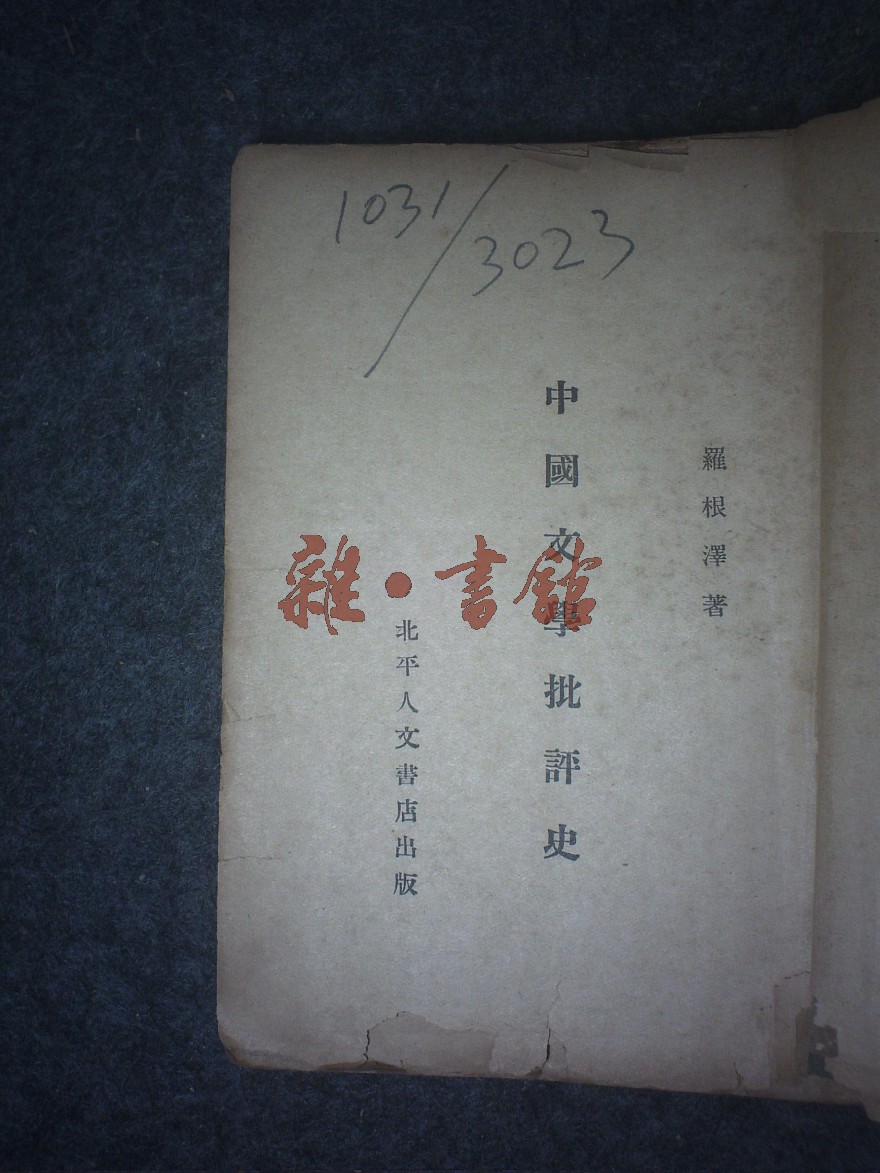 1031/3023
羅根澤著
中國文學批評史
北平人文書店出版
雜·書館